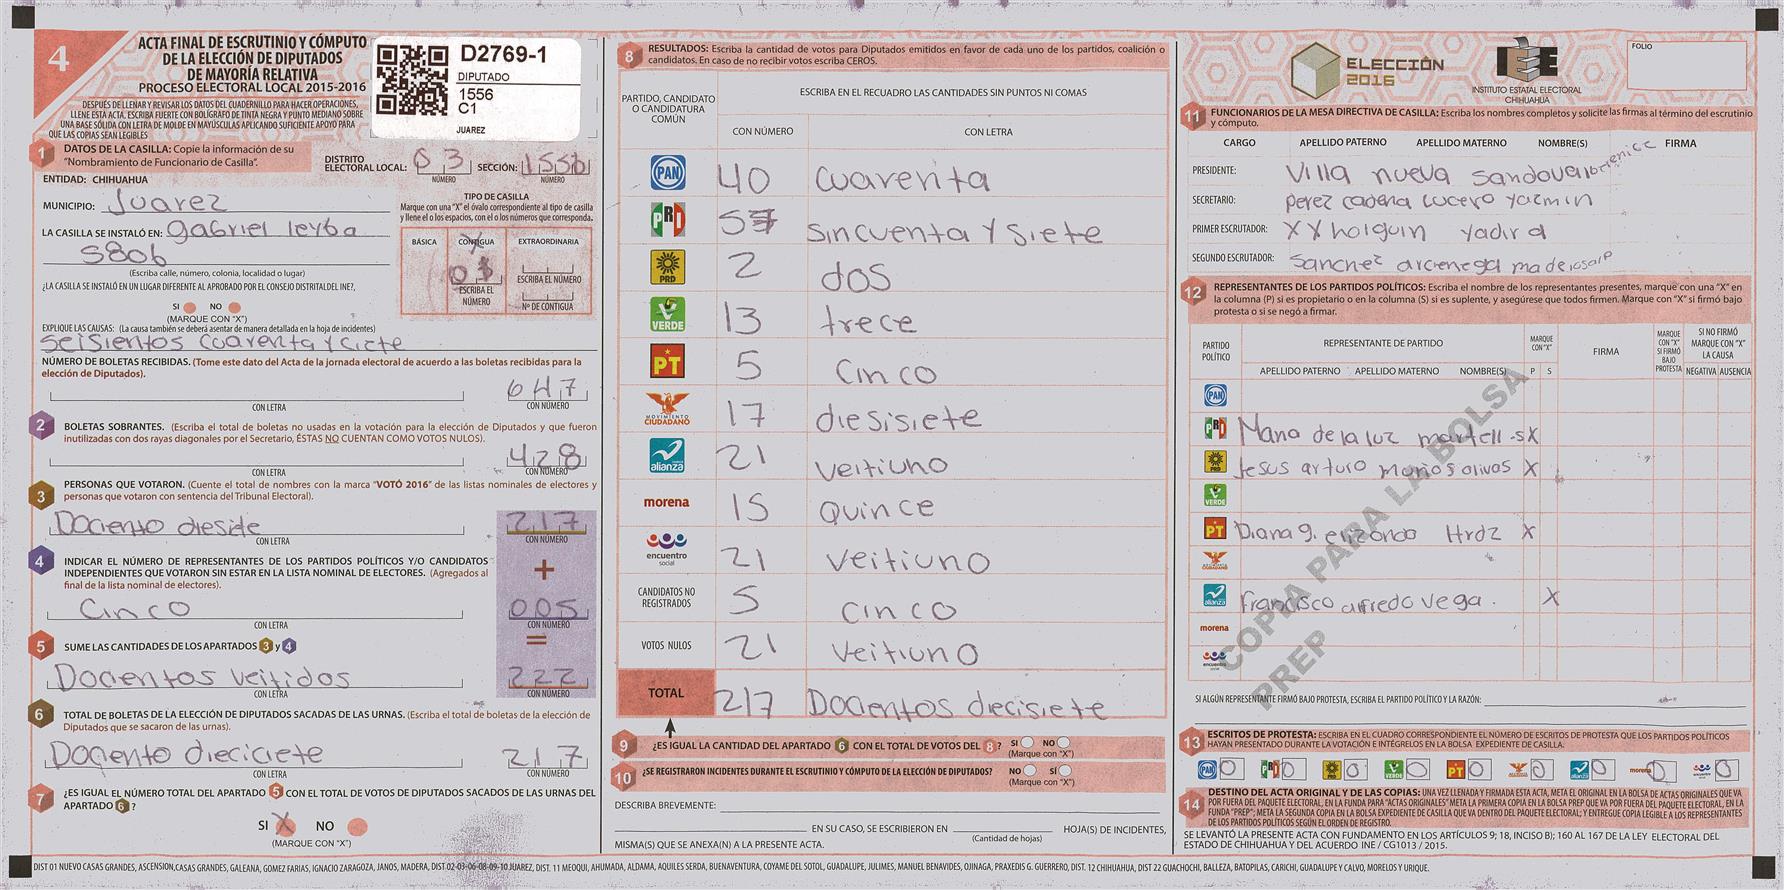 4
ACTA FINAL DE ESCRUTINIO Y CÓMPUTO
DE LA ELECCIÓN DE DIPUTADOS
DE MAYORÍA RELATIVA
PROCESO ELECTORAL LOCAL 2015-2016
DESPUÉS DE LLENAR Y REVISAR LOS DATOS DEL CUADERNILLO PARA HACER OPERACIONES,
LLENE ESTA ACTA. ESCRIBA FUERTE CON BOLÍGRAFO DE TINTA NEGRA Y PUNTO MEDIANO SOBRE
UNA BASE SÓLIDA CON LETRA DE MOLDE EN MAYÚSCULAS APLICANDO SUFICIENTE APOYO PARA
QUE LAS COPIAS SEAN LEGIBLES
D2769-1
DIPUTADO
1556
C1
JUAREZ
1 DATOS DE LA CASILLA: Copie la información de su
"Nombramiento de Funcionario de Casilla".
DISTRITO
ELECTORAL LOCAL: 03 SECCIÓN: 1556
NÚMERO NÚMERO
ENTIDAD: CHIHUAHUA
MUNICIPIO: Juarez
LA CASILLA SE INSTALÓ EN: gabriel leyba
5806
(Escriba calle, número, colonia, localidad o lugar)
TIPO DE CASILLA
Marque con una "X" el óvalo correspondiente al tipo de casilla
y llene el o los espacios, con el o los números que corresponda.
BÁSICA CONTIGUA EXTRAORDINARIA
X
01
ESCRIBA EL NÚMERO
ESCRIBA EL NÚMERO
Nº DE CONTIGUA
¿LA CASILLA SE INSTALÓ EN UN LUGAR DIFERENTE AL APROBADO POR EL CONSEJO DISTRITAL DEL INE?,
SI NO
(MARQUE CON "X")
EXPLIQUE LAS CAUSAS: (La causa también se deberá asentar de manera detallada en la hoja de incidentes)
seisientos cuarenta y ciete
NÚMERO DE BOLETAS RECIBIDAS. (Tome este dato del Acta de la jornada electoral de acuerdo a las boletas recibidas para la
elección de Diputados).
647
CON LETRA CON NÚMERO
2 BOLETAS SOBRANTES. (Escriba el total de boletas no usadas en la votación para la elección de Diputados y que fueron
inutilizadas con dos rayas diagonales por el Secretario, ÉSTAS NO CUENTAN COMO VOTOS NULOS).
428
CON LETRA CON NÚMERO
3 PERSONAS QUE VOTARON. (Cuente el total de nombres con la marca "VOTÓ 2016" de las listas nominales de electores y
personas que votaron con sentencia del Tribunal Electoral).
217
CON LETRA CON NÚMERO
4 INDICAR EL NÚMERO DE REPRESENTANTES DE LOS PARTIDOS POLÍTICOS Y/O CANDIDATOS
INDEPENDIENTES QUE VOTARON SIN ESTAR EN LA LISTA NOMINAL DE ELECTORES. (Agregados al
final de la lista nominal de electores).
+
Cinco 005
CON LETRA CON NÚMERO
5 SUME LAS CANTIDADES DE LOS APARTADOS 3 y 4
=
Docientos veitidos 222
CON LETRA CON NÚMERO
6 TOTAL DE BOLETAS DE LA ELECCIÓN DE DIPUTADOS SACADAS DE LAS URNAS. (Escriba el total de boletas de la elección de
Diputados que se sacaron de las urnas).
Dociento dieciciete 217
CON LETRA CON NÚMERO
7 ¿ES IGUAL EL NÚMERO TOTAL DEL APARTADO 5 CON EL TOTAL DE VOTOS DE DIPUTADOS SACADOS DE LAS URNAS DEL
APARTADO 6?
SI X NO
(MARQUE CON "X")
8 RESULTADOS: Escriba la cantidad de votos para Diputados emitidos en favor de cada uno de los partidos, coalición o
candidatos. En caso de no recibir votos escriba CEROS.
PARTIDO, CANDIDATO
O CANDIDATURA
COMÚN
ESCRIBA EN EL RECUADRO LAS CANTIDADES SIN PUNTOS NI COMAS
CON NÚMERO CON LETRA
PAN 40 cuarenta
PRI 57 sincuenta y siete
PRD 2 dos
VERDE 13 trece
PT 5 cinco
MOVIMIENTO CIUDADANO 17 diesisiete
alianza 21 veitiuno
morena 15 quince
encuentro social 21 veitiuno
CANDIDATOS NO REGISTRADOS 5 cinco
VOTOS NULOS 21 veitiuno
TOTAL 217 Docientos diecisiete
9 ¿ES IGUAL LA CANTIDAD DEL APARTADO 6 CON EL TOTAL DE VOTOS DEL 8? SI NO
(Marque con "X")
10 ¿SE REGISTRARON INCIDENTES DURANTE EL ESCRUTINIO Y CÓMPUTO DE LA ELECCIÓN DE DIPUTADOS? NO SÍ
(Marque con "X")
DESCRIBA BREVEMENTE:
EN SU CASO, SE ESCRIBIERON EN HOJA(S) DE INCIDENTES,
(Cantidad de hojas)
MISMA(S) QUE SE ANEXA(N) A LA PRESENTE ACTA.
ELECCIÓN
2016
IEE
INSTITUTO ESTATAL ELECTORAL
CHIHUAHUA
FOLIO
11 FUNCIONARIOS DE LA MESA DIRECTIVA DE CASILLA: Escriba los nombres completos y solicite las firmas al término del escrutinio
y cómputo.
CARGO APELLIDO PATERNO APELLIDO MATERNO NOMBRE(S) FIRMA
PRESIDENTE: Villa nueva sandoval berenice
SECRETARIO: perez cadena lucero yazmin
PRIMER ESCRUTADOR: XX holguin yadira
SEGUNDO ESCRUTADOR: sanchez
12 REPRESENTANTES DE LOS PARTIDOS POLÍTICOS: Escriba el nombre de los representantes presentes, marque con una "X" en
la columna (P) si es propietario o en la columna (S) si es suplente, y asegúrese que todos firmen. Marque con "X" si firmó bajo
protesta o si se negó a firmar.
PARTIDO
POLÍTICO
REPRESENTANTE DE PARTIDO
MARQUE CON "X"
FIRMA
MARQUE CON "X" SI FIRMÓ BAJO PROTESTA
SI NO FIRMÓ MARQUE CON "X" LA CAUSA
APELLIDO PATERNO APELLIDO MATERNO NOMBRE(S) P S NEGATIVA AUSENCIA
PAN
PRI Maria de la luz martell X
PRD Jesus arturo olivas X
VERDE
PT Diana g. Hrdz X
MOVIMIENTO CIUDADANO
alianza Francisco alfredo vega. X
morena
encuentro social
COPIA PARA LA BOLSA
PREP
SI ALGÚN REPRESENTANTE FIRMÓ BAJO PROTESTA, ESCRIBA EL PARTIDO POLÍTICO Y LA RAZÓN:
13 ESCRITOS DE PROTESTA: ESCRIBA EN EL CUADRO CORRESPONDIENTE EL NÚMERO DE ESCRITOS DE PROTESTA QUE LOS PARTIDOS POLÍTICOS
HAYAN PRESENTADO DURANTE LA VOTACIÓN E INTÉGRELOS EN LA BOLSA EXPEDIENTE DE CASILLA.
PAN 0 PRI 0 PRD 0 VERDE 0 PT 0 0 alianza 0 morena 0 0
14 DESTINO DEL ACTA ORIGINAL Y DE LAS COPIAS: UNA VEZ LLENADA Y FIRMADA ESTA ACTA, META EL ORIGINAL EN LA BOLSA DE ACTAS ORIGINALES QUE VA
POR FUERA DEL PAQUETE ELECTORAL, EN LA FUNDA PARA "ACTAS ORIGINALES" META LA PRIMERA COPIA EN LA BOLSA PREP QUE VA POR FUERA DEL PAQUETE ELECTORAL, EN LA
FUNDA "PREP"; META LA SEGUNDA COPIA EN LA BOLSA EXPEDIENTE DE CASILLA QUE VA DENTRO DEL PAQUETE ELECTORAL; Y ENTREGUE COPIA LEGIBLE A LOS REPRESENTANTES
DE LOS PARTIDOS POLÍTICOS SEGÚN EL ORDEN DE REGISTRO.
SE LEVANTÓ LA PRESENTE ACTA CON FUNDAMENTO EN LOS ARTÍCULOS 9; 18, INCISO B); 160 AL 167 DE LA LEY ELECTORAL DEL
ESTADO DE CHIHUAHUA Y DEL ACUERDO INE / CG1013 / 2015.
DIST 01 NUEVO CASAS GRANDES, ASCENSION, CASAS GRANDES, GALEANA, GOMEZ FARIAS, IGNACIO ZARAGOZA, JANOS, MADERA, DIST. 02-03-06-08-09-10 JUAREZ, DIST. 11 MEOQUI, AHUMADA, ALDAMA, AQUILES SERDA, BUENAVENTURA, COYAME DEL SOTOL, GUADALUPE, JULIMES, MANUEL BENAVIDES, OJINAGA, PRAXEDIS G. GUERRERO, DIST. 12 CHIHUAHUA, DIST 22 GUACHOCHI, BALLEZA, BATOPILAS, CARICHI, GUADALUPE Y CALVO, MORELOS Y URIQUE.